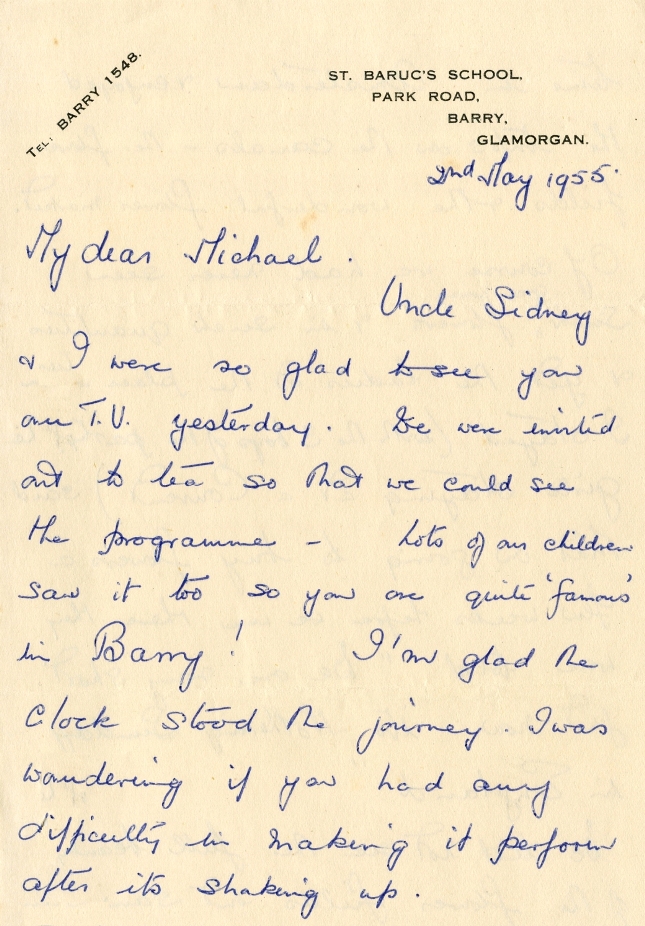 TEL: BARRY 1548.
ST. BARUC'S SCHOOL,
PARK ROAD,
BARRY,
GLAMORGAN.
2nd May 1955.
My dear Michael.
Uncle Sidney
& I were so glad to see you
on T.V. yesterday. We were invited
out to tea so that we could see
the programme - Lots of our children
saw it too so you are quite 'famous'
in Barry! I'm glad the
clock stood the journey. I was
wondering if you had any
difficulty in making it perform
after its shaking up.